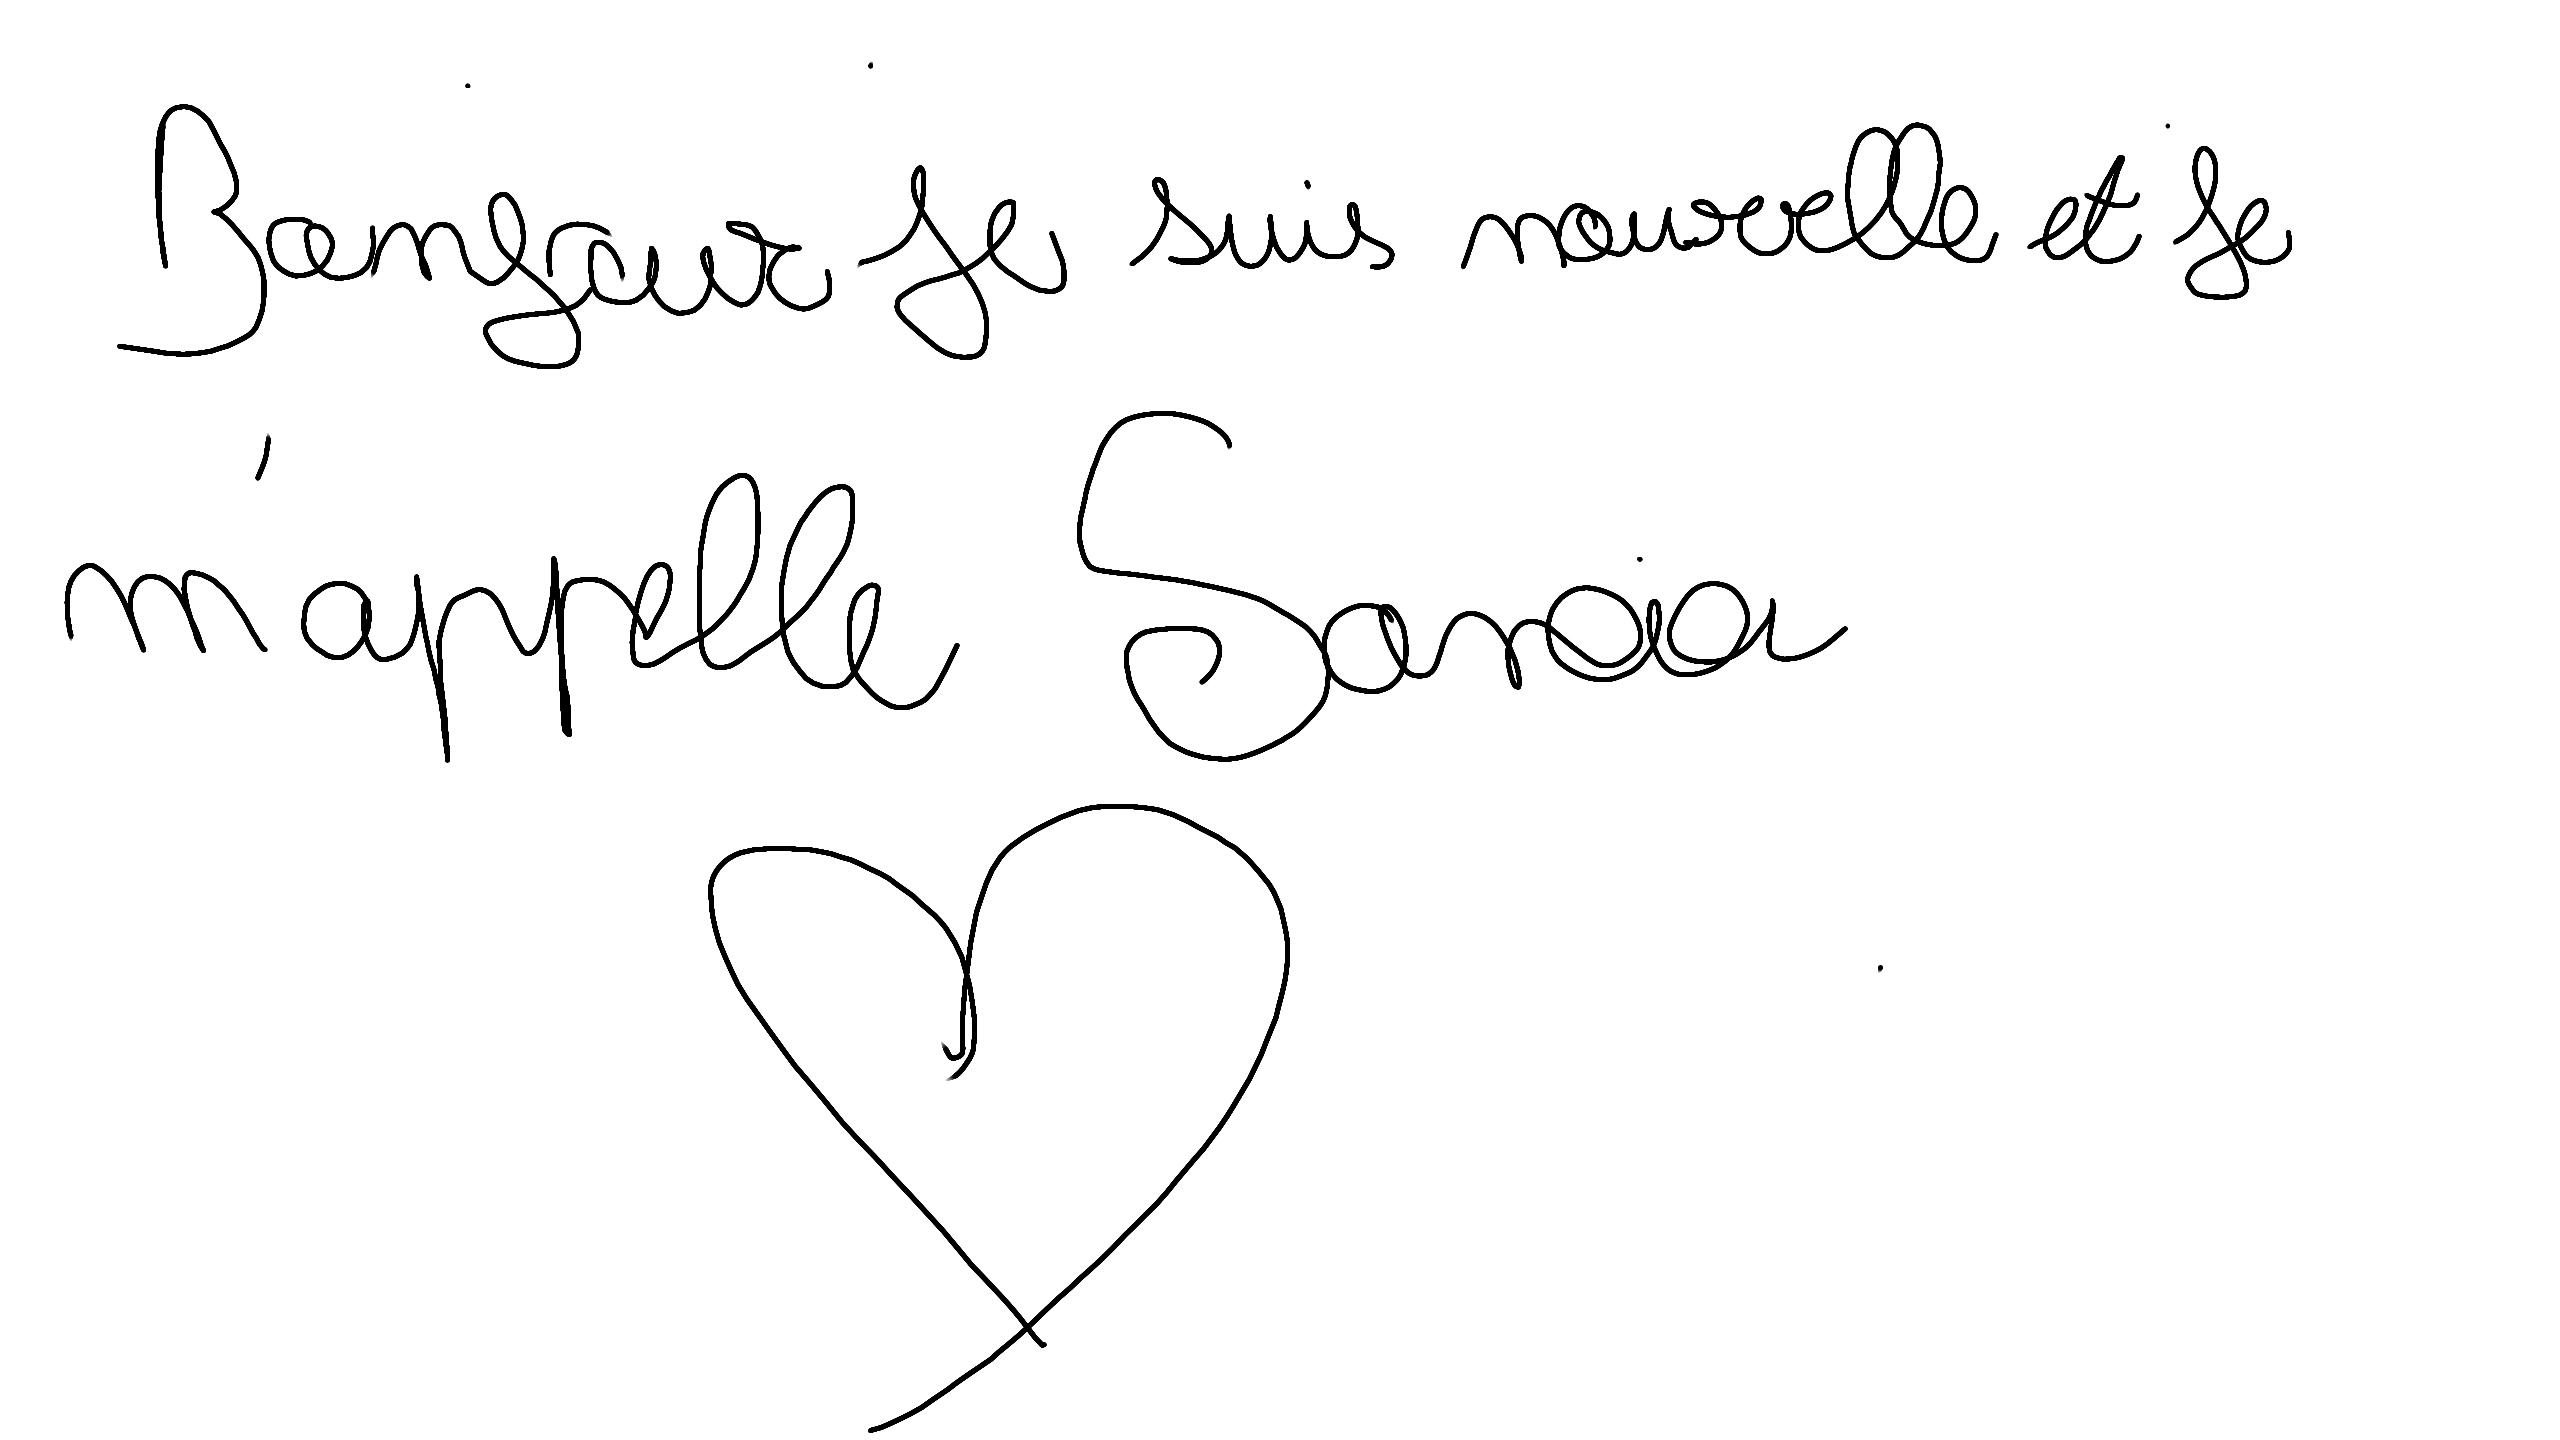 Bonjour je suis nouvelle et je
m'appelle Sania